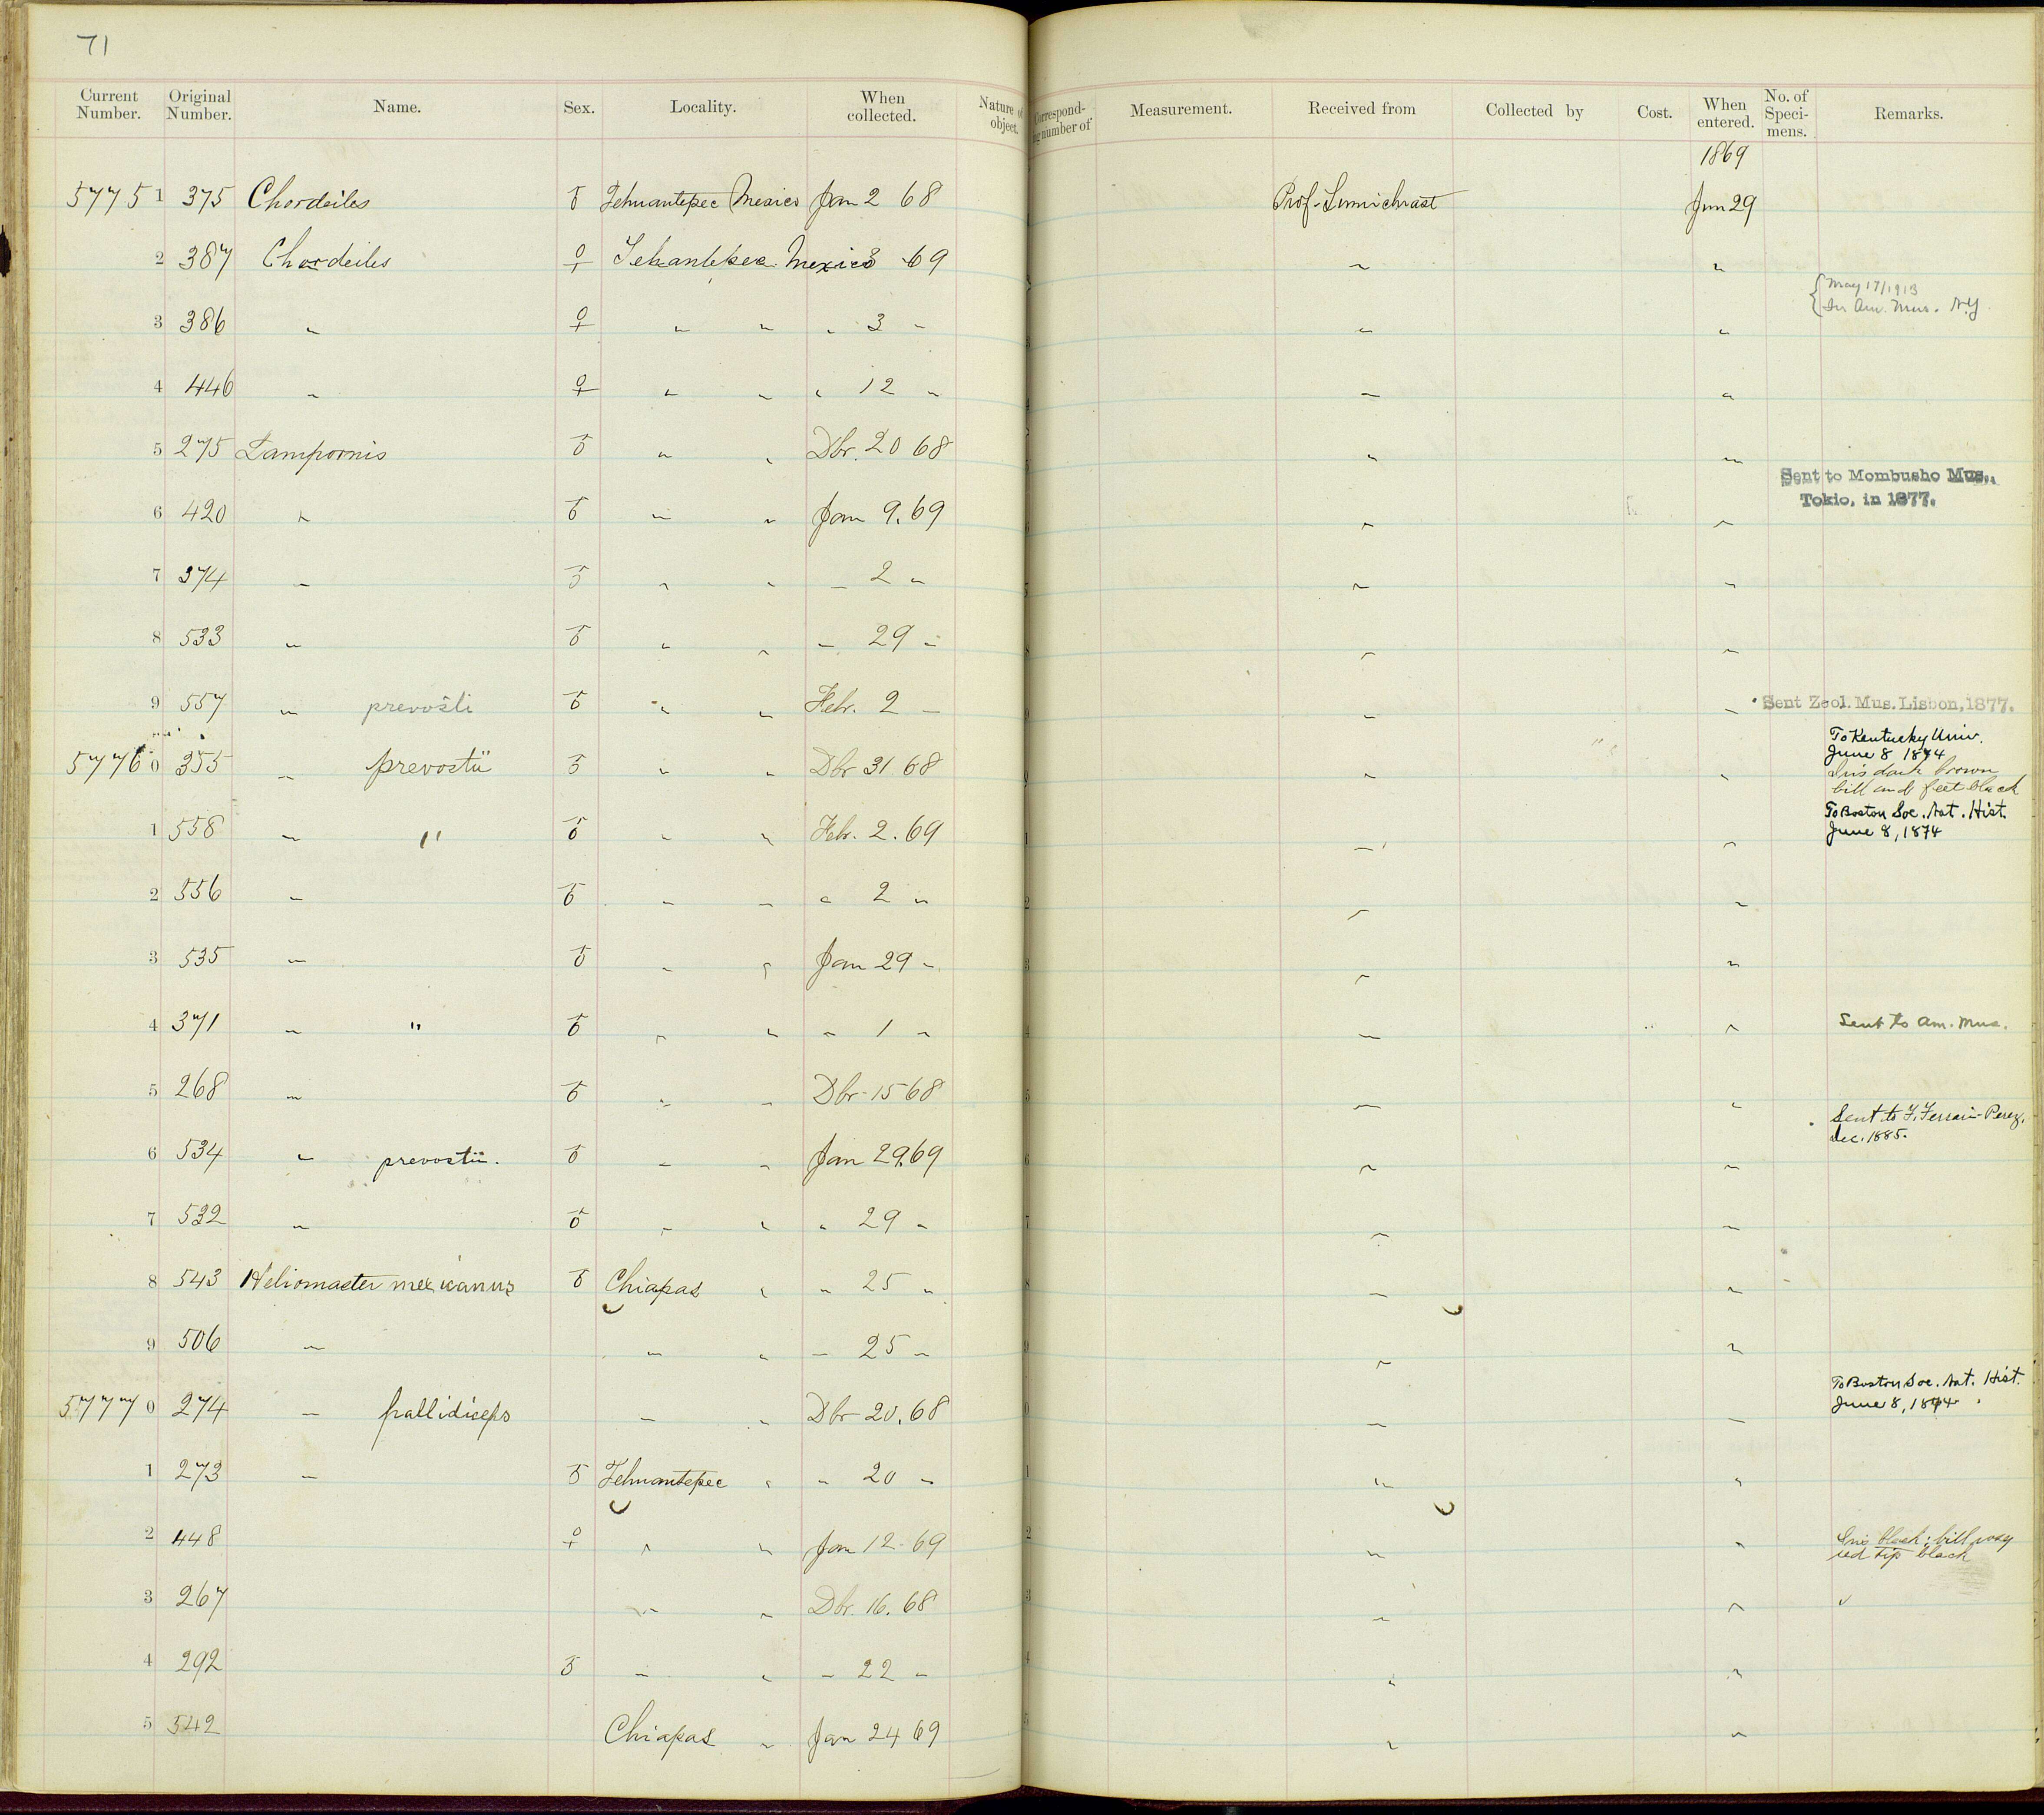 71
Current Number. Original Number. Name. Sex. Locality. When collected. Nature of object. Correspond-ing number of Measurement. Received from Collected by Cost. When entered. No. of Speci-mens. Remarks.
1869
5775 1 375 Chordeiles ♂ Tehuantepec Mexico Jan 2 68 Prof. Sumichrast Jun 29
2 387 Chordeiles ♀ Tehantepec Mexico 3 69 " "
{May 17/1913
In Am. Mus. N.Y.
3 386 " ♀ " " " 3 " " "
4 446 " ♀ " " " 12 " " "
5 275 Lampornis ♂ " " Dbr. 20 68 " "
Sent to Mombusho Mus.
Tokio, in 1877.
6 420 " ♂ " " Jan 9. 69 " "
7 374 " ♂ " " " 2 " " "
8 533 " ♂ " " " 29 " " "
9 557 " prevosti ♂ " " Febr. 2 " " " Sent Zool. Mus. Lisbon, 1877.
5776 0 355 " prevostii ♂ " " Dbr 31 68 " "
To Kentucky Univ.
June 8 1874
Iris dark brown
bill and feet black
1 558 " " ♂ " " Febr. 2. 69 " "
To Boston Soc. Nat. Hist.
June 8, 1874
2 556 " ♂ " " " 2 " " "
3 535 " ♂ " " Jan 29 " " "
4 371 " " ♂ " " " 1 " " " Sent to Am. Mus.
5 268 " ♂ " " Dbr 15 68 " "
Sent to F. Ferrari-Perez,
Dec. 1885.
6 534 " prevostii. ♂ " " Jan 29. 69 " "
7 532 " ♂ " " " 29 " " "
8 543 Heliomaster mexicanus ♂ Chiapas " " 25 " " "
9 506 " " " " 25 " " "
5777 0 274 " pallidiceps " " Dbr 20. 68 " "
To Boston Soc. Nat. Hist.
June 8, 1874.
1 273 " ♂ Tehuantepec " " 20 " " "
2 448 ♀ " " Jan 12 69 " "
Iris black; bill rosy
red tip black
3 267 " " Dbr. 16. 68 " "
4 292 ♂ " " " 22 " " "
5 542 Chiapas " Jan 24 69 " "